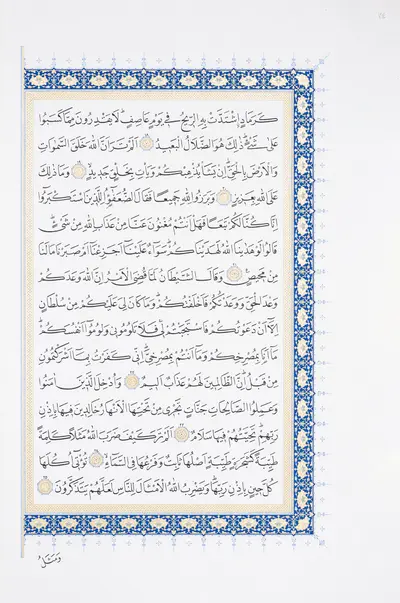 كَرَمَادٍ اشْتَدَّتْ بِهِ الرِّيحُ فِي يَوْمٍ عَاصِفٍ لَا يَقْدِرُونَ مِمَّا كَسَبُوا
عَلَى شَيْءٍ ذَلِكَ هُوَ الضَّلَالُ الْبَعِيدُ اَلَمْ تَرَ اَنَّ اللهَ خَلَقَ السَّمَوَاتِ
وَالْاَرْضَ بِالْحَقِّ اِنْ يَشَأْ يُذْهِبْكُمْ وَيَأْتِ بِخَلْقٍ جَدِيدٍ وَمَا ذَلِكَ
عَلَى اللهِ بِعَزِيزٍ وَبَرَزُوا لِلهِ جَمِيعًا فَقَالَ الضُّعَفَٓؤُا لِلَّذِينَ اسْتَكْبَرُوا
اِنَّا كُنَّا لَكُمْ تَبَعًا فَهَلْ اَنْتُمْ مُغْنُونَ عَنَّا مِنْ عَذَابِ اللهِ مِنْ شَيْءٍ
قَالُوا لَوْ هَدَينَا اللهُ لَهَدَيْنَاكُمْ سَوَاءٌ عَلَيْنَا اَجَزِعْنَا اَمْ صَبَرْنَا مَا لَنَا
مِنْ مَحِيصٍ وَقَالَ الشَّيْطَانُ لَمَّا قُضِيَ الْاَمْرُ اِنَّ اللهَ وَعَدَكُمْ
وَعْدَ الْحَقِّ وَوَعَدْتُكُمْ فَاَخْلَفْتُكُمْ وَمَا كَانَ لِيَ عَلَيْكُمْ مِنْ سُلْطَانٍ
اِلَّا اَنْ دَعَوْتُكُمْ فَاسْتَجَبْتُمْ لِي فَلَا تَلُومُونِي وَلُومُوا اَنْفُسَكُمْ
مَا اَنَا بِمُصْرِخِكُمْ وَمَا اَنْتُمْ بِمُصْرِخِيَّ اِنِّي كَفَرْتُ بِمَا اَشْرَكْتُمُونِ
مِنْ قَبْلُ اِنَّ الظَّالِمِينَ لَهُمْ عَذَابٌ اَلِيمٌ وَاُدْخِلَ الَّذِينَ اٰمَنُوا
وَعَمِلُوا الصَّالِحَاتِ جَنَّاتٍ تَجْرِي مِنْ تَحْتِهَا الْاَنْهَارُ خَالِدِينَ فِيهَا بِاِذْنِ
رَبِّهِمْ تَحِيَّتُهُمْ فِيهَا سَلَامٌ اَلَمْ تَرَ كَيْفَ ضَرَبَ اللهُ مَثَلًا كَلِمَةً
طَيِّبَةً كَشَجَرَةٍ طَيِّبَةٍ اَصْلُهَا ثَابِتٌ وَفَرْعُهَا فِي السَّمَاءِ تُؤْتِي اُكُلَهَا
كُلَّ حِينٍ بِاِذْنِ رَبِّهَا وَيَضْرِبُ اللهُ الْاَمْثَالَ لِلنَّاسِ لَعَلَّهُمْ يَتَذَكَّرُونَ
وَمَثَلُ